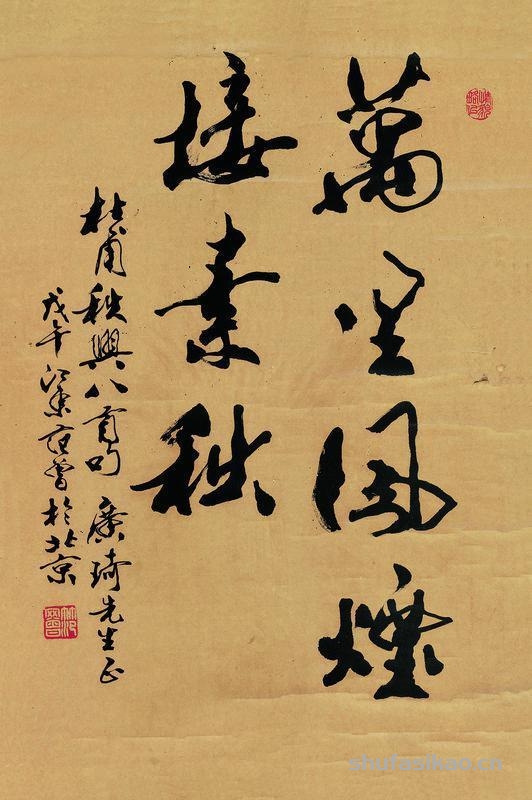 萬里風煙
接素秋
杜甫秋興八首句 廉琦先生正
戊午江東范曾於北京
shuhuaikao.cn